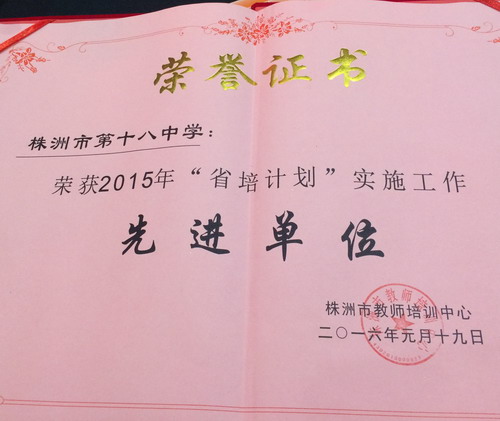 荣誉证书
株洲市第十八中学：
荣获2015年“省培计划”实施工作
先进单位
株洲市教师培训中心
二〇一六年元月十九日